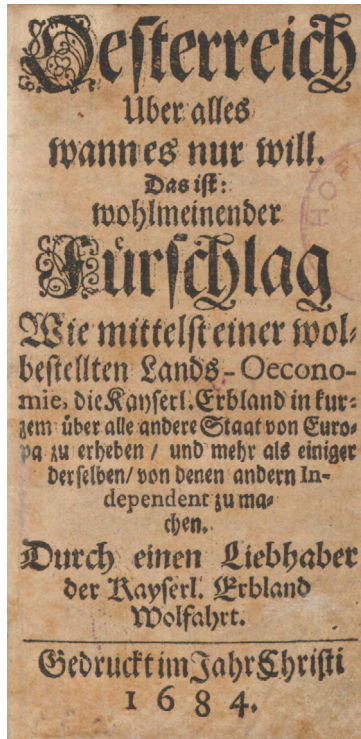 Oesterreich
Uber alles
wann es nur will.
Das ist:
wohlmeinender
Fürschlag
Wie mittelst einer wol-
bestellten Lands-Oecono-
mie, die Kayserl. Erbland in kur-
zem über alle andere Staat von Euro-
pa zu erheben / und mehr als einiger
derselben / von denen andern In-
dependent zu ma-
chen.
Durch einen Liebhaber
der Kayserl. Erbland
Wolfahrt.
Gedruckt im Jahr Christi
1684.